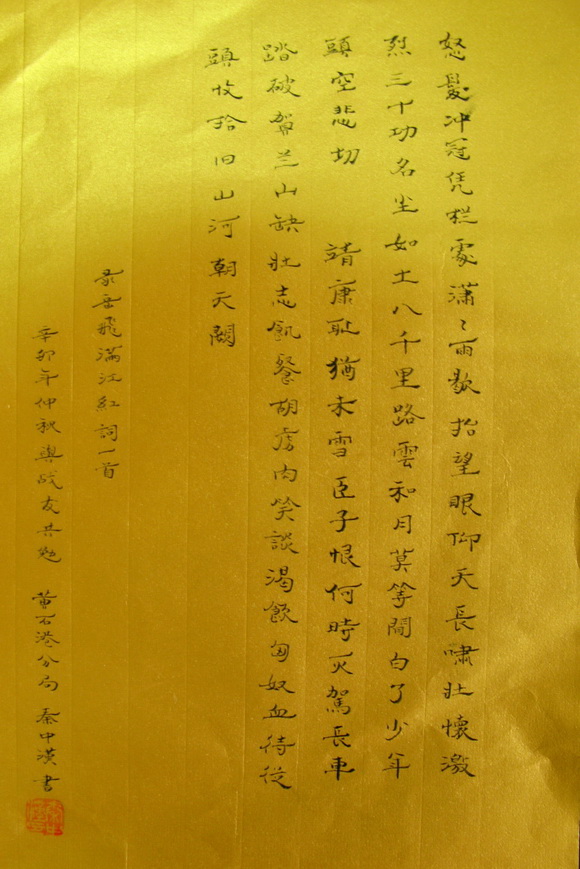 怒髮冲冠凭栏處瀟〻雨歇抬望眼仰天長嘯壯懷激
烈三十功名尘如土八千里路雲和月莫等閒白了少年
頭空悲切 靖康耻猶未雪臣子恨何時灭駕長車
踏破賀兰山缺壮志飢餐胡虜肉笑談渴飲匈奴血待從
頭收拾旧山河朝天闕
录岳飛满江紅詞一首
辛卯年仲秋與战友共勉 黄石港分局 秦中漢書